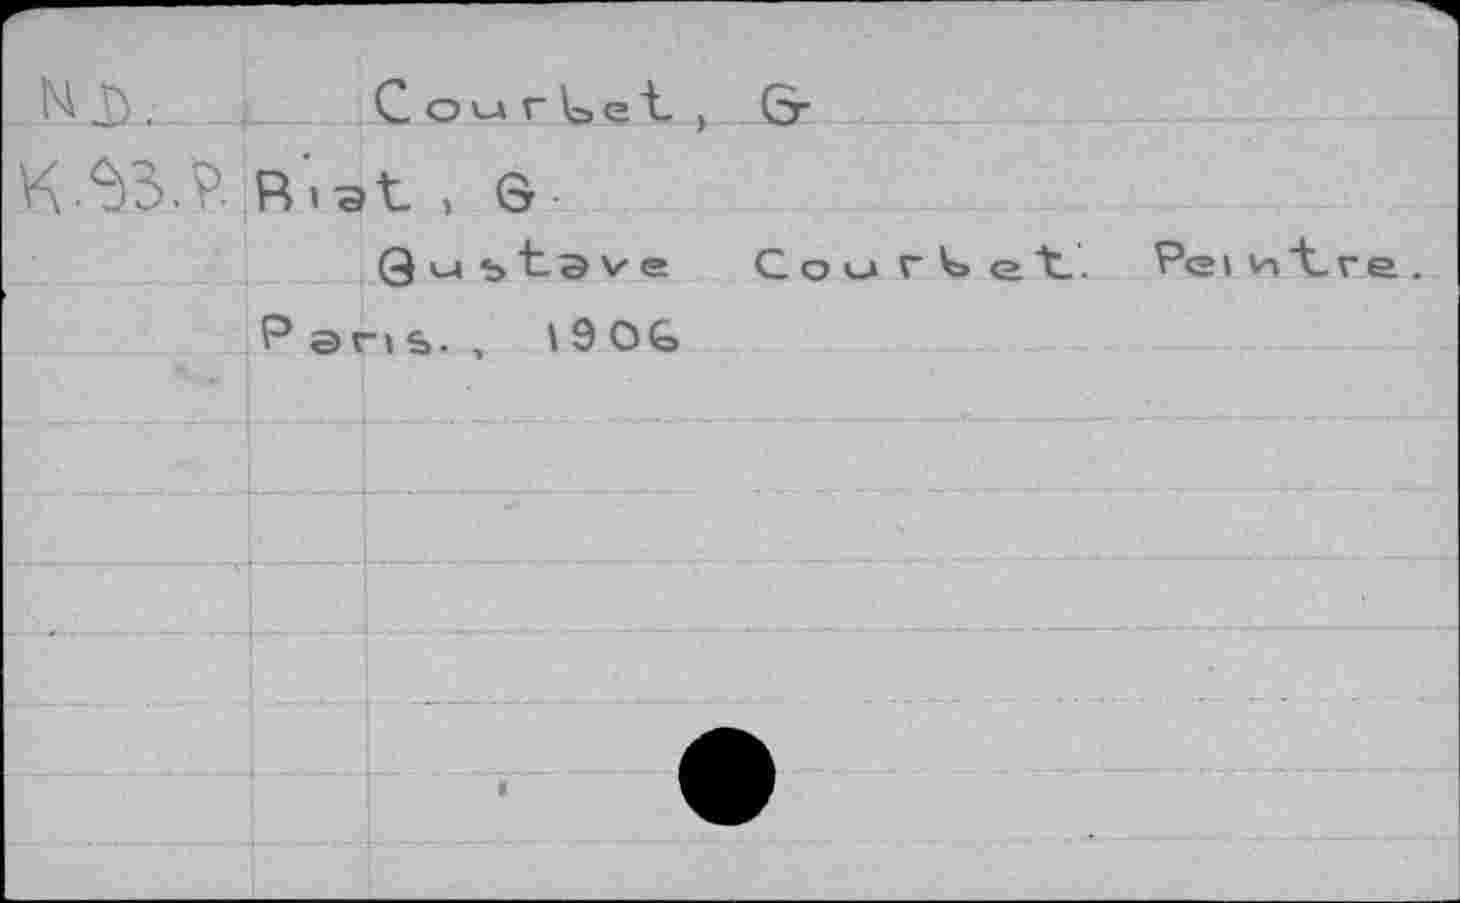 N.D. Courbet, G
K.93.P. Riat, G.
Gustave Courbet. Peintre.
Paris., 1906